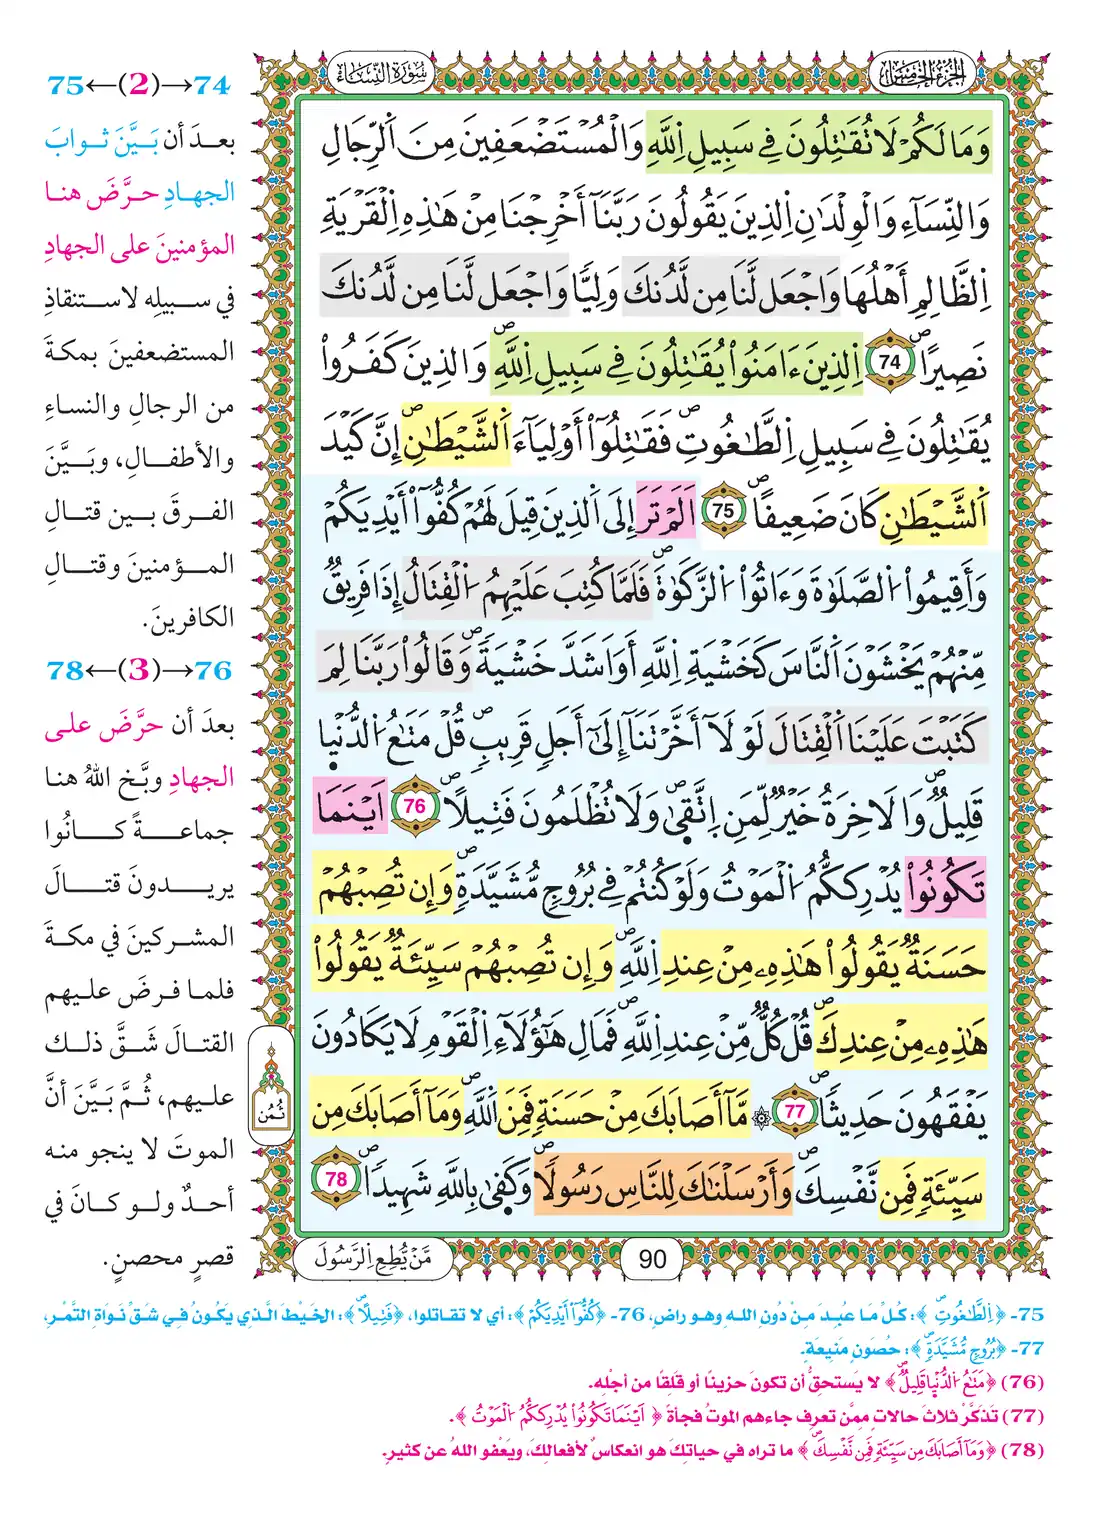 الجزء الخامس
سورة النساء
وَمَا لَكُمْ لَا تُقَٰتِلُونَ فِے سَبِيلِ اِ۬للَّهِ وَالْمُسْتَضْعَفِينَ مِنَ اَ۬لرِّجَالِ
وَالنِّسَآءِ وَالْوِلْدَٰنِ اِ۬لذِينَ يَقُولُونَ رَبَّنَآ أَخْرِجْنَا مِنْ هَٰذِهِ اِ۬لْقَرْيَةِ
اِ۬لظَّالِمِ أَهْلُهَا وَاجْعَل لَّنَا مِن لَّدُنكَ وَلِيّٗا وَاجْعَل لَّنَا مِن لَّدُنكَ
نَصِيراًۖ 74 اِ۬لذِينَ ءَامَنُواْ يُقَٰتِلُونَ فِے سَبِيلِ اِ۬للَّهِۖ وَالذِينَ كَفَرُواْ
يُقَٰتِلُونَ فِے سَبِيلِ اِ۬لطَّٰغُوتِۖ فَقَٰتِلُوٓاْ أَوْلِيَآءَ اَ۬لشَّيْطَٰنِۖ إِنَّ كَيْدَ
اَ۬لشَّيْطَٰنِ كَانَ ضَعِيفاًۖ 75 اَلَمْ تَرَ إِلَى اَ۬لذِينَ قِيلَ لَهُمْ كُفُّوٓاْ أَيْدِيَكُمْ
وَأَقِيمُواْ اُ۬لصَّلَوٰةَ وَءَاتُواْ اُ۬لزَّكَوٰةَۖ فَلَمَّا كُتِبَ عَلَيْهِمُ اُ۬لْقِتَالُ إِذَا فَرِيقٞ
مِّنْهُمْ يَخْشَوْنَ اَ۬لنَّاسَ كَخَشْيَةِ اِ۬للَّهِ أَوَ اَشَدَّ خَشْيَةٗۖ وَقَالُواْ رَبَّنَا لِمَ
كَتَبْتَ عَلَيْنَا اَ۬لْقِتَالَ لَوْلَآ أَخَّرْتَنَآ إِلَىٰٓ أَجَلٖ قَرِيبٖۖ قُلْ مَتَٰعُ اُ۬لدُّنْيَا
قَلِيلٞۖ وَالَاخِرَةُ خَيْرٞ لِّمَنِ اِ۪تَّقَىٰۖ وَلَا تُظْلَمُونَ فَتِيلاًۖ 76 اَيْنَمَا
تَكُونُواْ يُدْرِككُّمُ اُ۬لْمَوْتُ وَلَوْ كُنتُمْ فِے بُرُوجٖ مُّشَيَّدَةٖۖ وَإِن تُصِبْهُمْ
حَسَنَةٞ يَقُولُواْ هَٰذِهِۦ مِنْ عِندِ اِ۬للَّهِۖ وَإِن تُصِبْهُمْ سَيِّئَةٞ يَقُولُواْ
هَٰذِهِۦ مِنْ عِندِكَۖ قُلْ كُلّٞ مِّنْ عِندِ اِ۬للَّهِۖ فَمَالِ هَٰٓؤُلَآءِ اِ۬لْقَوْمِ لَا يَكَادُونَ
يَفْقَهُونَ حَدِيثاًۖ 77 ۞ مَّآ أَصَابَكَ مِنْ حَسَنَةٖ فَمِنَ اَ۬للَّهِۖ وَمَآ أَصَابَكَ مِن
سَيِّئَةٖ فَمِن نَّفْسِكَۖ وَأَرْسَلْنَٰكَ لِلنَّاسِ رَسُولاٗۖ وَكَفَىٰ بِاللَّهِ شَهِيداًۖ 78
ثُمُن
90
مَّنْ يُّطِعِ اِ۬لرَّسُولَ
74→(2)←75
بعدَ أن بَيَّنَ ثوابَ
الجهادِ حرَّضَ هنا
المؤمنينَ على الجهادِ
في سبيلِه لاستنقاذِ
المستضعفينَ بمكةَ
من الرجالِ والنساءِ
والأطفالِ، وبَيَّنَ
الفرقَ بين قتالِ
المؤمنينَ وقتالِ
الكافرينَ.
76→(3)←78
بعدَ أن حرَّضَ على
الجهادِ وبَّخ اللهُ هنا
جماعةً كانُوا
يريدونَ قتالَ
المشركينَ في مكةَ
فلما فرضَ عليهم
القتالَ شَقَّ ذلك
عليهم، ثُمَّ بَيَّنَ أنَّ
الموتَ لا ينجو منه
أحدٌ ولو كانَ في
قصرٍ محصنٍ.
75- ﴿اِ۬لطَّٰغُوتِۖ﴾: كُلُّ مَا عُبِدَ مِنْ دُونِ اللهِ وهو راضٍ، 76- ﴿كُفُّوٓاْ أَيْدِيَكُمْ﴾: أي لا تقاتلوا، ﴿فَتِيلاًۖ﴾: الخَيْطَ الَّذي يَكُونُ فِي شَقِّ نَواةِ التَّمْرِ،
77- ﴿بُرُوجٖ مُّشَيَّدَةٖۖ﴾: حُصُونٍ مَنِيعَةٍ.
(76) ﴿مَتَٰعُ اُ۬لدُّنْيَا قَلِيلٞۖ﴾ لا يَستحقُّ أن تكونَ حزينًا أو قَلِقًا من أجْلِه.
(77) تَذكَّرْ ثلاثَ حالاتٍ ممَّن تعرِف جاءهم الموتُ فجأةً ﴿اَيْنَمَا تَكُونُواْ يُدْرِككُّمُ اُ۬لْمَوْتُ﴾.
(78) ﴿وَمَآ أَصَابَكَ مِن سَيِّئَةٖ فَمِن نَّفْسِكَۖ﴾ ما تراه في حياتِكَ هو انعكاسٌ لأفعالِكَ، ويَعْفو اللهُ عن كثيرٍ.